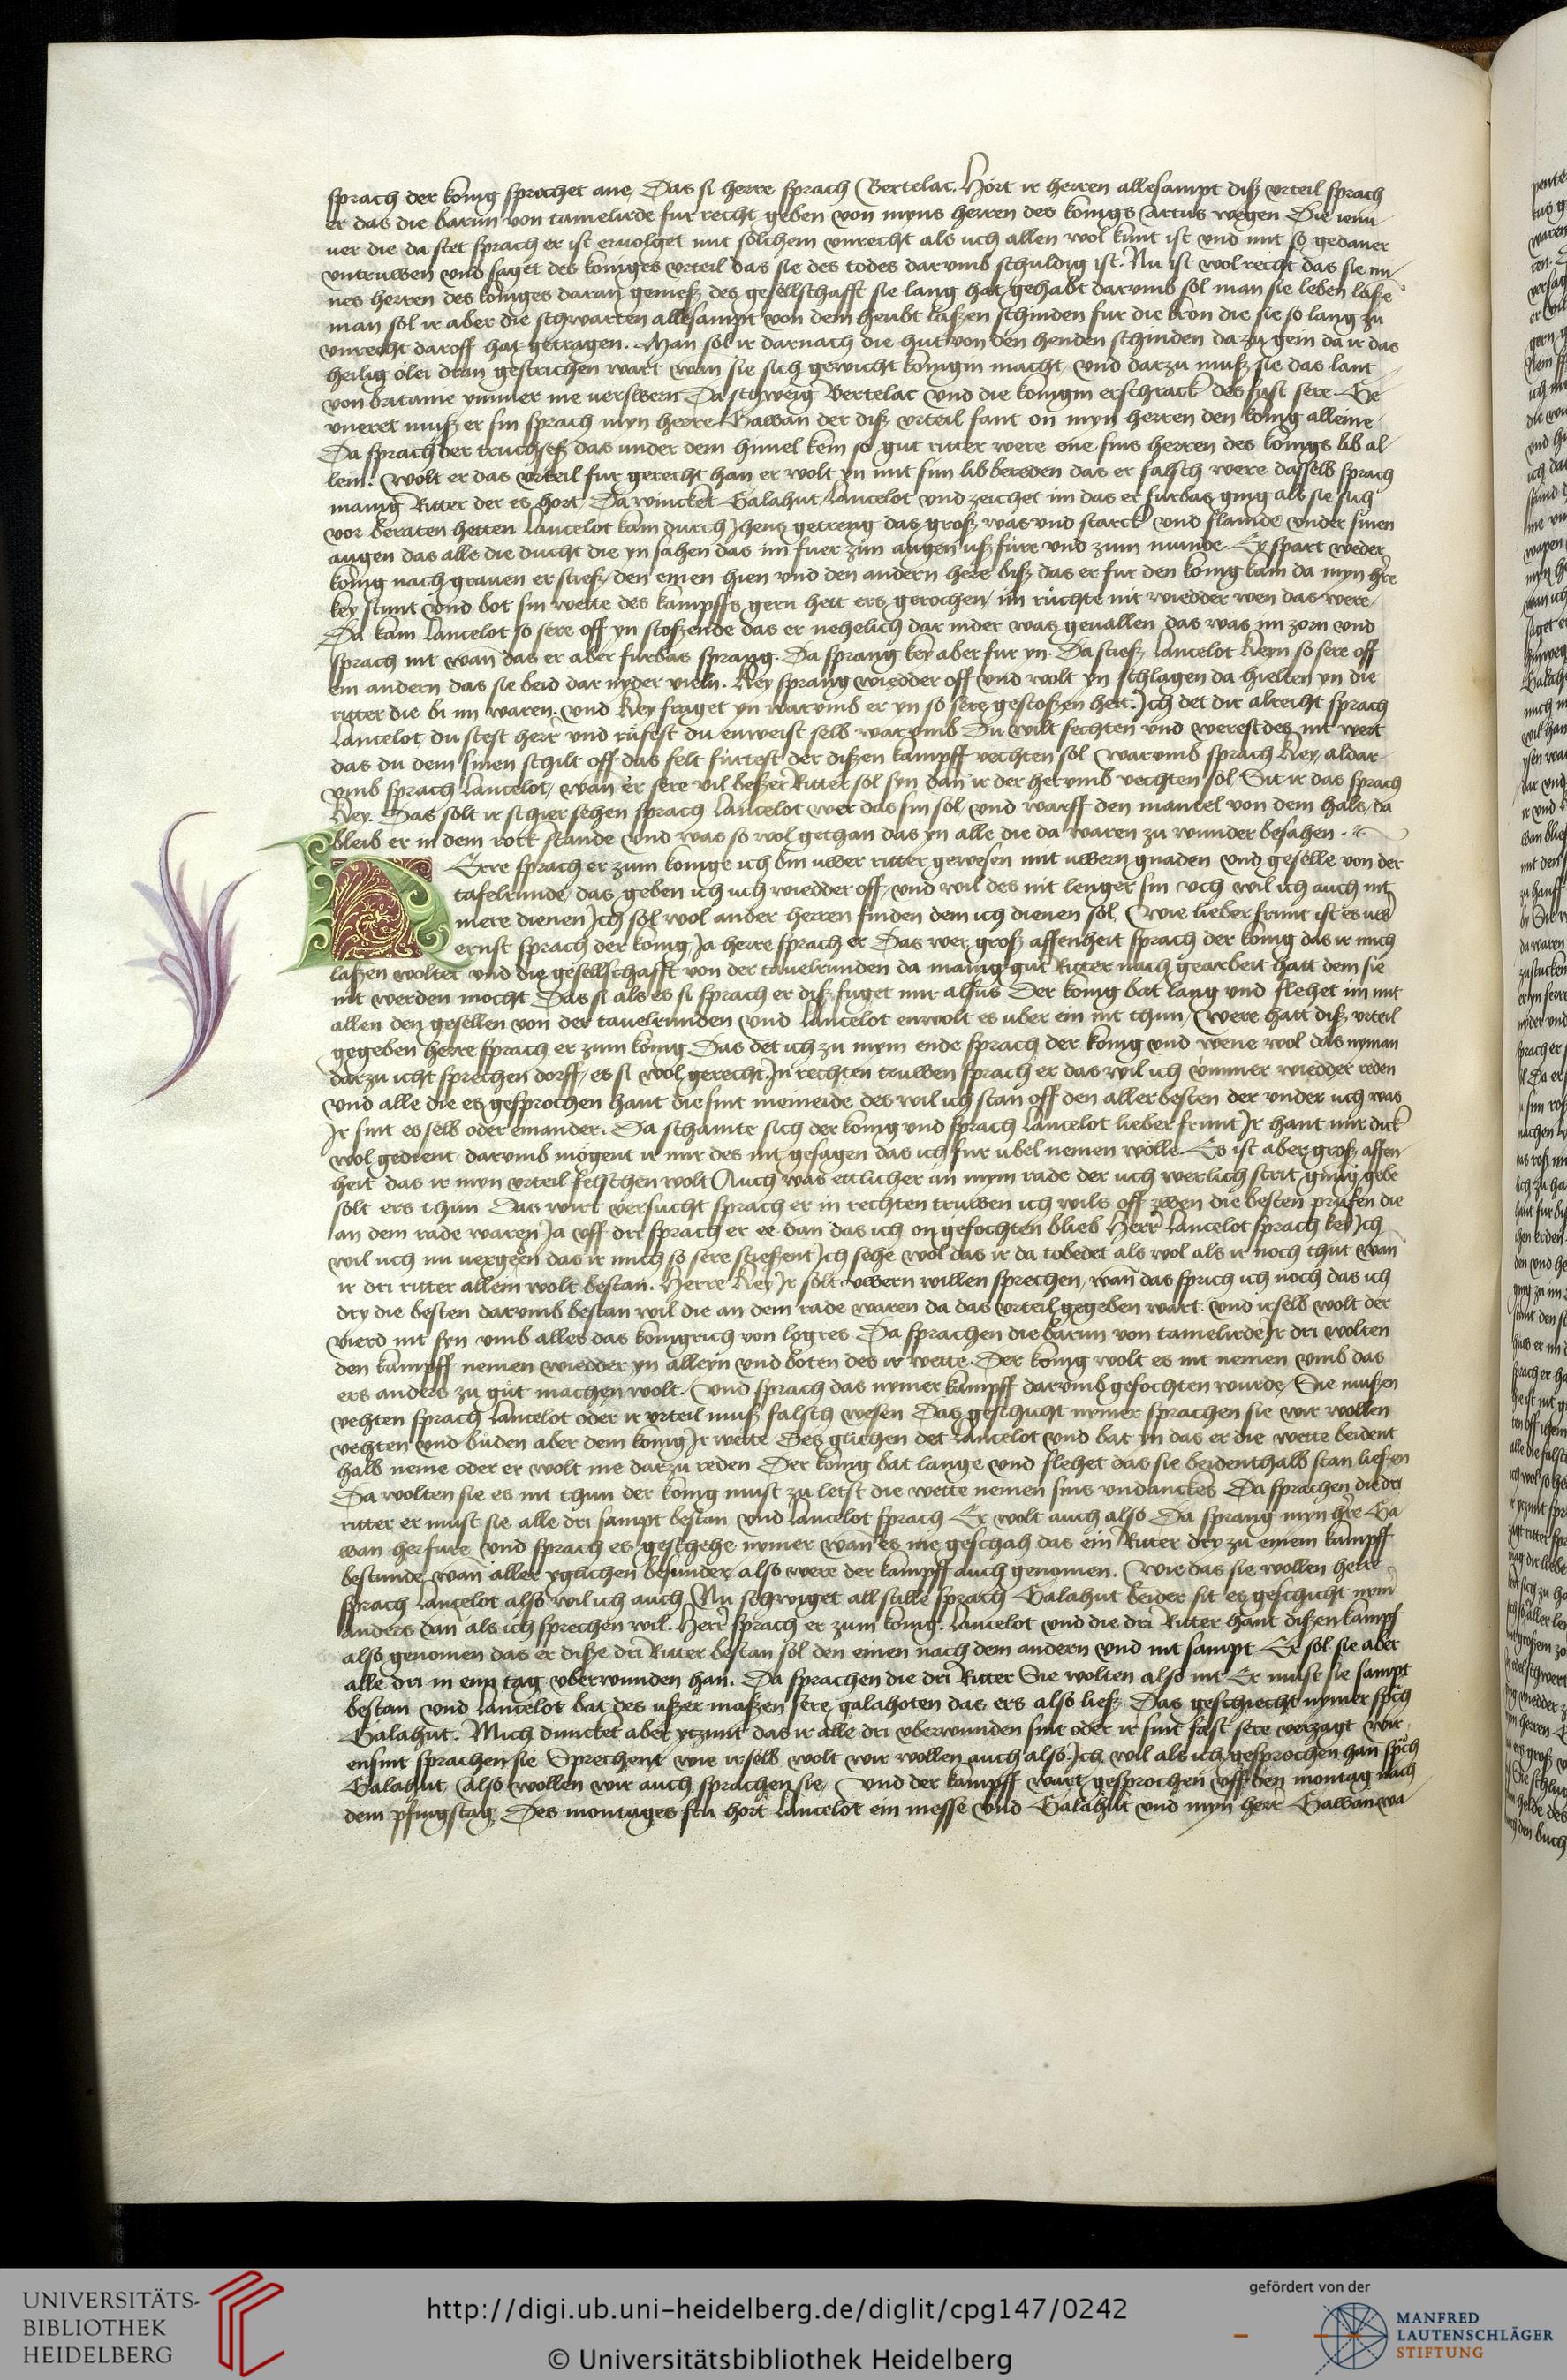 sprach der konig sprechet ane, Das si herre sprach Bertelac. Hört ir herren allesampt diß urteil sprach
er das die barün von tamelirde fur recht geben von myns herren des konigs Artus wegen Die
uer die da stet sprach er ist eruolget mit solchem unrecht als uch allen wol kunt ist und mit so gedaner
untruwen und saget des koniges urteil das sie des todes darumb schuldig ist. Nu ist wol recht das sie mi
nes herren des koniges daran genieß des gesellschafft sie lang hat gehabt darumb sol man sie leben laße
man sol ir aber die schwarten allesampt von dem heubt laßen schinden fur die kron die sie so lang zu
unrecht daroff hat getragen. Man sol ir darnach die hut von den henden schinden da zu gein da ir das
heilig ölei dran gestrichen wart wan sie sich gewicht konigin macht, und darzu muß sie das lant
von britanie ymmer me verswern Da schweig Bertelac und die konigin erschrack des fast sere Ge
uneret muß er sin sprach myn herre Gawan der diß urteil fant on myn herren den konig alleine
Da sprach der truchseß das under dem himel kein so gut ritter were one sins herren des konigs lib al
lein. Wolt er das urteil fur gerecht han er wolt yn mit sim lib bereden das er falsch were dasselb sprach
manig Ritter der es hort, Da wincket Galahut Lancelot und zeichet im das er furbas ging als sie sich
vor beraten hetten Lancelot kam durch jhens getreng das groß was und starck und flamde under sinen
augen das alle die ducht die yn sahen das im fuer zun augen uß füre und zum munde Er spart weder
konig nach grauen er stieß den einen hien und den andern here biß das er fur den konig kam da myn h're
key stunt und bot sin wette des kampffs gern hett ers gerochen, im rüchte nit wiedder wen das were,
Da kam Lancelot so sere off yn stoßende das er nehelich dar nider was geuallen das was im zorn und
sprach nit wan das er aber furbas sprang. Da sprang key aber fur yn. Da stieß Lancelot Keyn so sere off
ein andern das sie beid dar nyder vieln. Key sprang wiedder off und wolt yn schlagen da hielten yn die
ritter die bi im waren. und Key fraget yn warumb er yn so sere gestoßen hett. Ich det dir alrecht sprach
Lancelot du stest herr und rüfest du enweist selb warumb Du wilt fechten und werest des nit wert
das du dem sinen schilt off das felt fürtest der dißen kampff vechten sol Warumb sprach Key, aldar
umb sprach Lancelot, wan er sere vil beßer Ritter sol syn dan ir der herumb vechten sol Sit ir das sprach
Key. Das solt ir schier sehen sprach Lancelot wer das sin sol, und warff den mantel von dem hals, da
bleib er in dem rock stande und was so wol gethan das yn alle die da waren zu wunder besahen.
Herre sprach er zum konige ich bin uwer ritter gewesen mit uwern gnaden und geselle von der
tafelrunde, das geben ich uch wiedder off, und wil des nit lenger sin uch wil ich auch nit
mere dienen Ich sol wol ander herren finden dem ich dienen sol, Wie lieber frunt ist es uwer
ernst sprach der konig Ja herre sprach er Das wer groß affenheit sprach der konig das ir mich
laßen woltet und die gesellschafft von der tauelrunden da manig gut Ritter nach gearbeit hatt dem sie
nit werden mocht Das si als es si sprach er diß fuget mir alsus Der konig bat lang und flehet im mit
allen den gesellen von der tauelrunden und Lancelot enwolt es uber ein nit thun, Were hatt diß urteil
gegeben herre sprach er zum konig Das det ich zu mym ende sprach der konig und wene wol das nyman
darzu icht sprechen dorff, es si wol gerecht. In rechten truwen sprach er das wil ich ummer wiedder reden
und alle die es gesprochen hant die sint meineide des wil ich stan off den allerbesten der under uch was
Ir sint es selb oder einander. Da schamte sich der konig und sprach Lancelot lieber frunt Ir hant mir dick
wol gedient darumb mögent ir mir des nit gesagen das ich fur ubel nemen wölle Es ist aber groß affen
heit das ir myn urteil felschen wolt Auch was ettlicher an mym rade der uch werlich strit gnug gebe
solt ers thun Das wirt versucht sprach er in rechten truwen ich wils off zwen die besten prüfen die
an dem rade waren Ja uff dri sprach er ee dan das ich on gefochten blieb Herr Lancelot sprach key Ich
wil uch nu vergeen das ir mich so sere stießent Ich sehe wol das ir da tobedet als wol als ir noch thut wan
ir dri ritter allein wolt bestan. Herre Key Ir solt uwern willen sprechen, wan das sprich ich noch das ich
dry die besten darumb bestan wil die an dem rade waren da das urteil gegeben wart. und ir selb wolt der
vierd nit syn umb alles das konigrich von logres Da sprachen die barun von tamelirde Ir dri wolten
den kampff nemen wiedder yn alleyn und boten des ir wette. Der konig wolt es nit nemen umb das
ers anders zu gut machen wolt. Und sprach das nymer kampff darumb gefochten wurde, Sie mußen
vechten sprach Lancelot oder ir urteil muß falsch wesen Das geschicht nymer sprachen sie wir wollen
vechten und buden aber dem konig Ir wette Des glichen det Lancelot und bat yn das er die wette beident
halb neme oder er wolt me darzu reden Der konig bat lange und flehet das sie beidenthalb stan ließen
Da wolten sie es nit thun der konig must zu letst die wette nemen sins undanckes Da sprachen die dri
ritter er must sie alle dri sampt bestan und Lancelot sprach Er wolt auch also Da sprang myn h're Ga
wan herfure und sprach es geschehe nymer wan es nie geschah das ein Ritter dry zu einem kampff
bestunde wan aller yglichen besunder, also were der kampff auch genomen. Wie das sie wollen herre
sprach Lancelot also wil ich auch Nu schwiget all stille sprach Galahut beider sit es geschicht nym'
anders dan als ich sprechen wil. Herr sprach er zum konig. Lancelot und die dri Ritter hant dißen kampf
also genomen das er diße dri Ritter bestan sol den einen nach dem andern und nit sampt Er sol sie aber
alle dri in eym tag uberwunden han. Da sprachen die dri Ritter Sie wolten also nit Er must sie sampt
bestan und Lancelot bat des ußer maßen sere galahoten das ers also ließ Das geschiecht nymer sp'ch
Galahut. Mich duncket aber ytzunt das ir alle dri uberwunden sint oder ir sint fast sere verzagt Wir
ensint sprachen sie Sprechent wie ir selb wolt wir wollen auch also. Ich wil als ich gesprochen han sp'ch
Galahut, Also wollen wir auch sprachen sie, Und der kampff wart gesprochen uff den montag nach
dem pfingstag Des montages fru hort Lancelot ein messe und Galahut und myn herr Gawan wa
UNIVERSITÄTS-
BIBLIOTHEK
HEIDELBERG
http://digi.ub.uni-heidelberg.de/diglit/cpg147/0242
© Universitätsbibliothek Heidelberg
gefördert von der
MANFRED
LAUTENSCHLÄGER
STIFTUNG